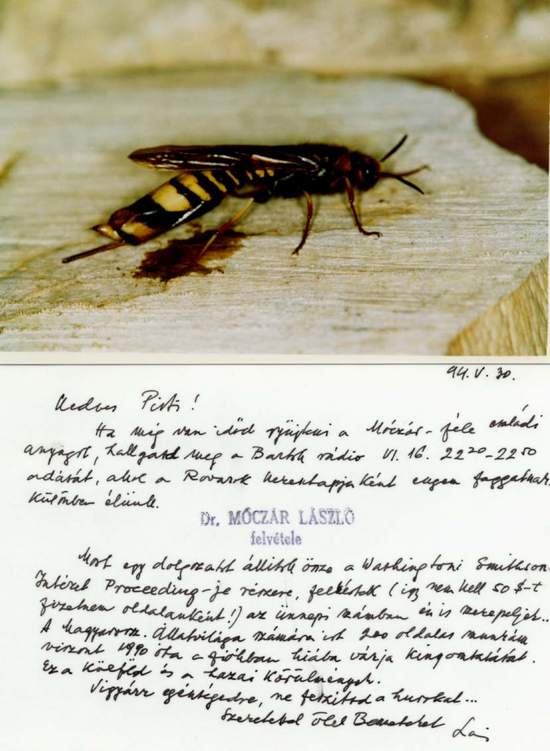 94. V. 30.
Kedves Pisti!
Ha még van időd gyűjteni a Móczár-féle családi
anyagot, hallgasd meg a Bartók rádió VI. 16. 22²⁰-22⁵⁰
adását, ahol a Rovarok keresztapjaként engem faggatnak.
Különben élünk.
Dr. MÓCZÁR LÁSZLÓ
felvétele
Most egy dolgozatot állítok össze a Washingtoni Smithson.
Intézet Proceeding-je részére, felkértek (így nem kell 50 $-t
fizetnem oldalanként!) az ünnepi számban én is szerepeljek...
A Magyarorsz. Állatvilága számára írt 200 oldalas munkám
viszont 1990 óta a fiókban hiába várja kinyomtatását.
Ez a külföld és a hazai körülmények.
Vigyázz egészségedre, ne feszítsd a húrokat...
Szeretettel ölel Benneteket Laci